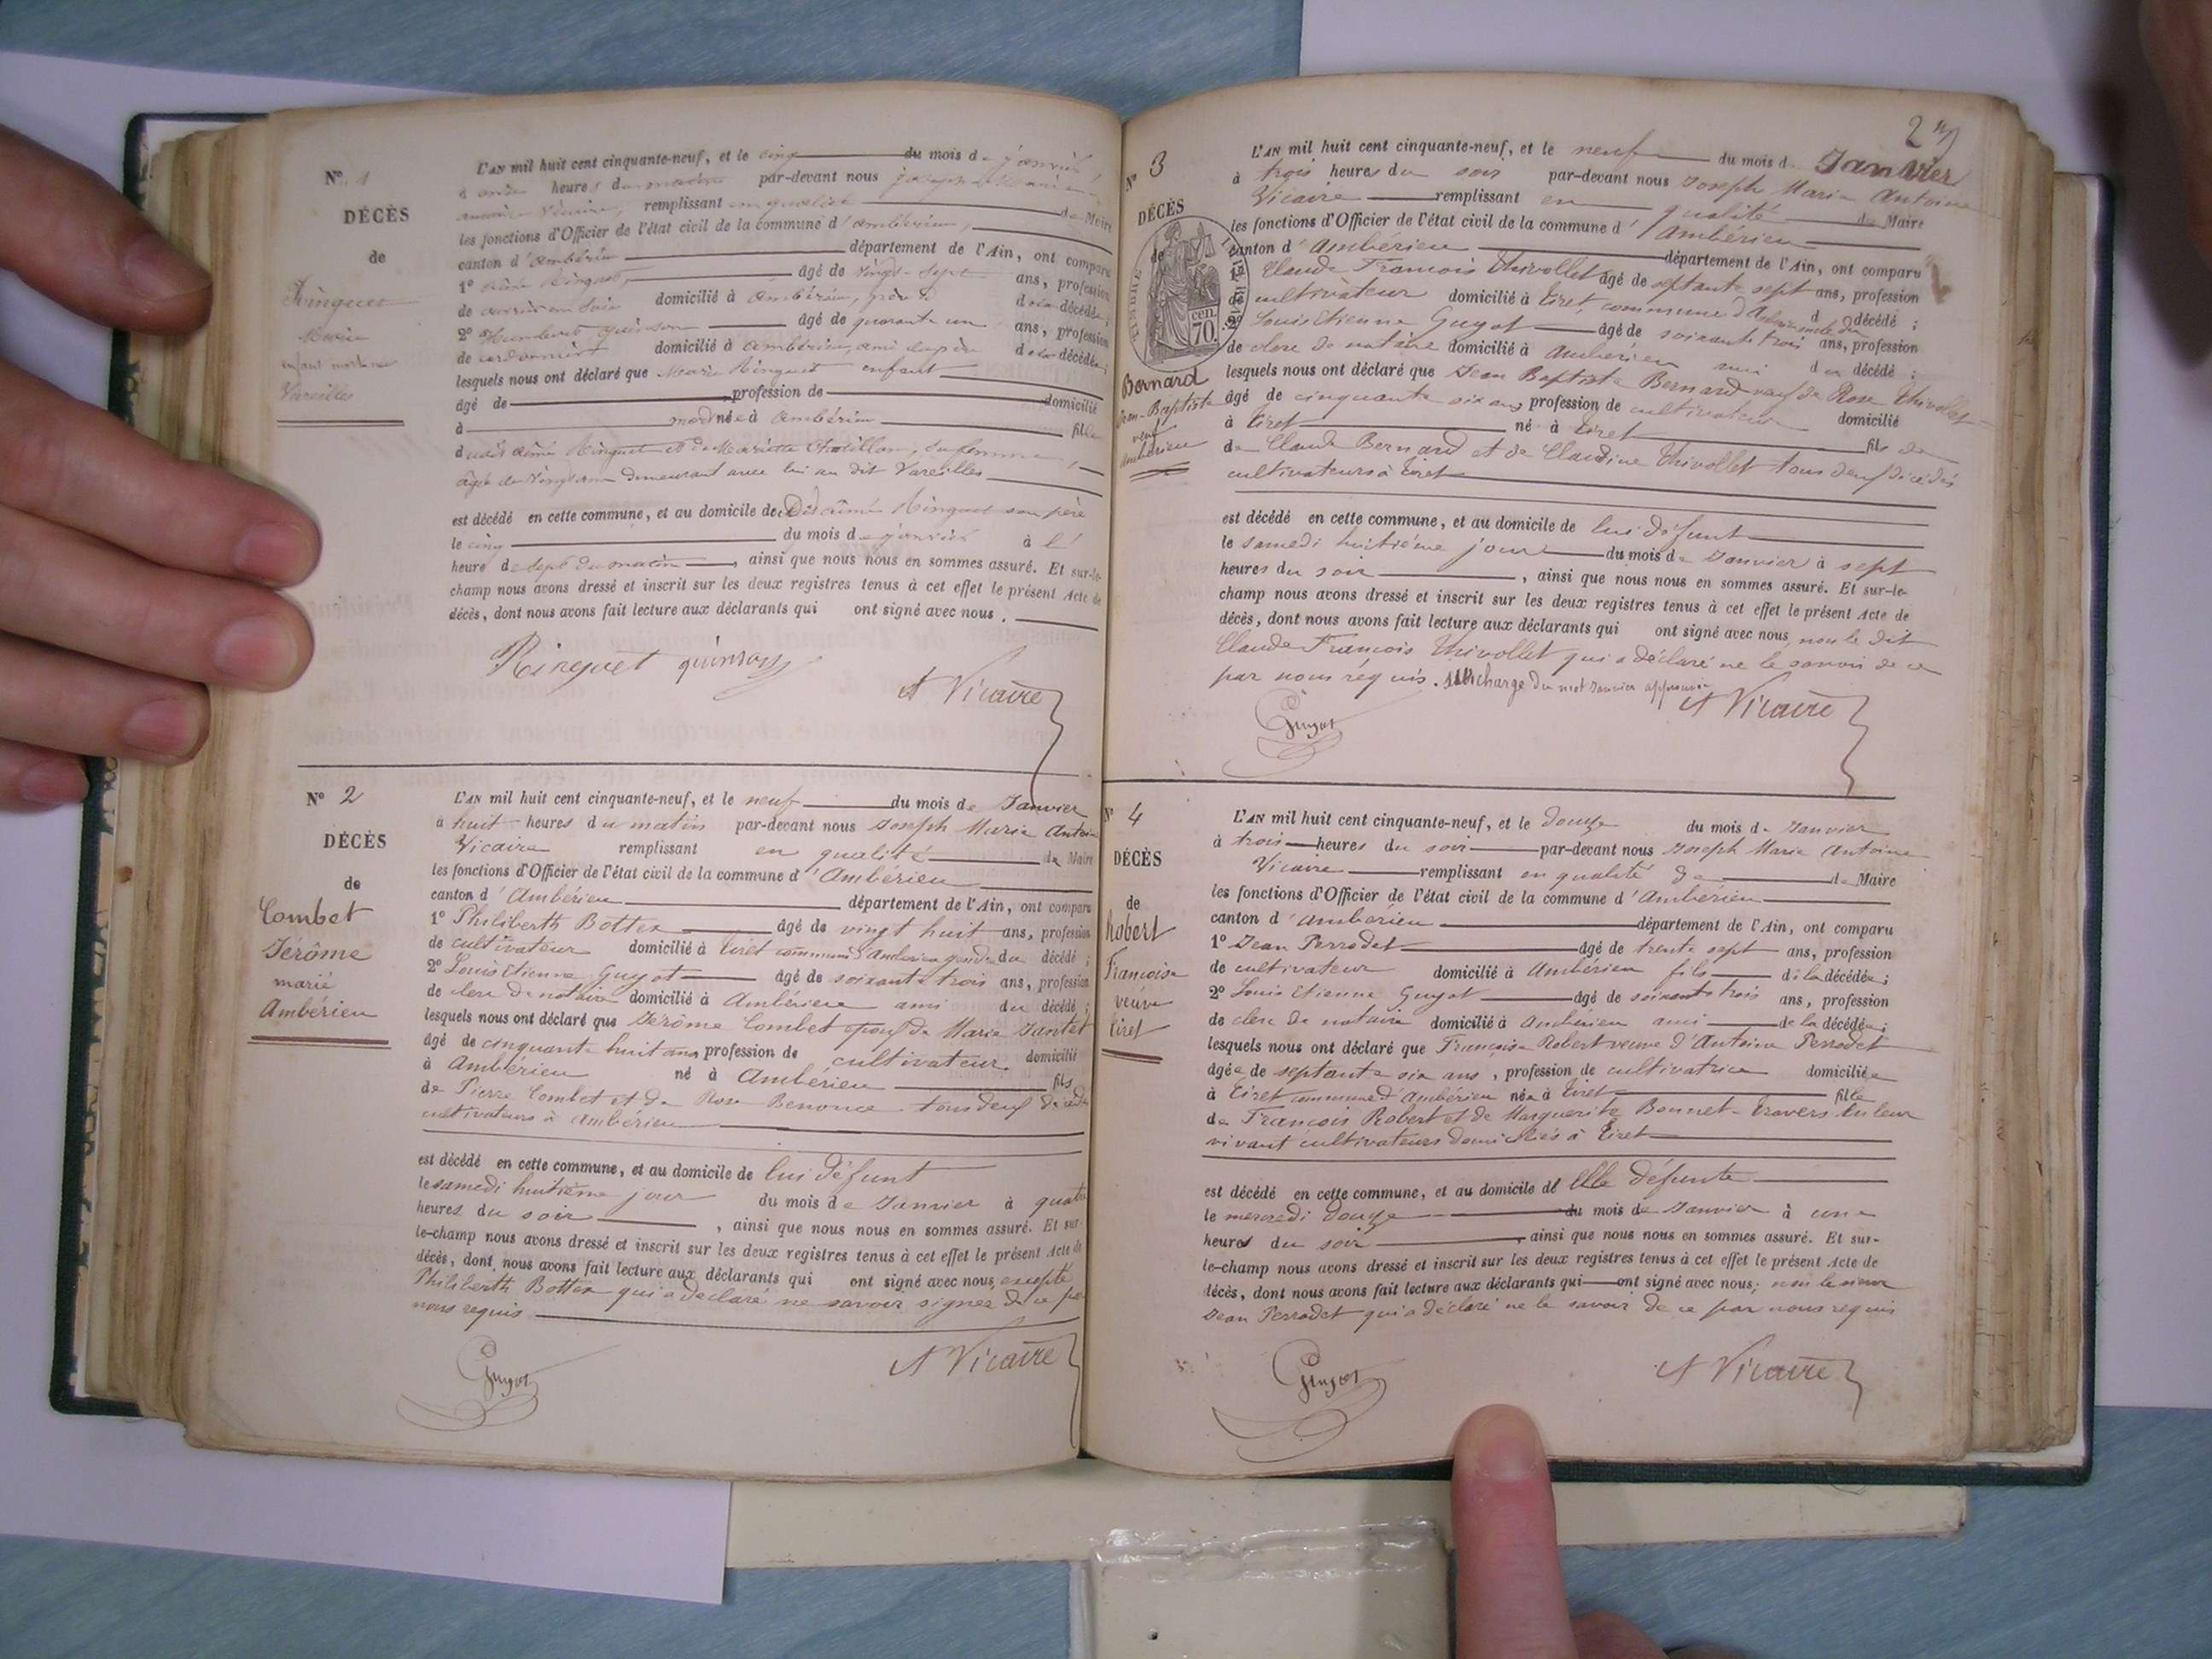 N° 1
DÉCÈS
de
Ringuet
Marie
enfant mort né
Vareilles
L'AN mil huit cent cinquante-neuf, et le cinq du mois de janvier,
à onze heures du matin par-devant nous joseph Marie
antoine Vicaire, remplissant en qualité de Maire
les fonctions d'Officier de l'état civil de la commune d'ambérieu,
canton d'ambérieu département de l'Ain, ont comparu
1° aimé Ringuet, âgé de vingt-sept ans, profession
de domicilié à ambérieu, père de la décédée;
2° Humbert quinson âgé de quarante un ans, profession
de cordonnier domicilié à ambérieu, ami du père de la décédée;
lesquels nous ont déclaré que Marie Ringuet enfant
âgé de profession de domicilié
à mort née à ambérieu fille
du dit aimé Ringuet et de Mariette Chatillon, sa femme,
âgée de vingt ans demeurant avec lui au dit Vareilles
est décédé en cette commune, et au domicile de dit aimé Ringuet son père
le cinq du mois de janvier à l'
heure de sept du matin, ainsi que nous nous en sommes assuré. Et sur-le-
champ nous avons dressé et inscrit sur les deux registres tenus à cet effet le présent Acte de
décès, dont nous avons fait lecture aux déclarants qui ont signé avec nous.
Ringuet quinson
A Vicaire
N° 2
DÉCÈS
de
Combet
Jérôme
marié
Ambérieu
L'AN mil huit cent cinquante-neuf, et le neuf du mois de Janvier
à huit heures du matin par-devant nous Joseph Marie Antoine
Vicaire remplissant en qualité de Maire
les fonctions d'Officier de l'état civil de la commune d'Ambérieu
canton d'Ambérieu département de l'Ain, ont comparu
1° Philiberth Bottex âgé de vingt huit ans, profession
de cultivateur domicilié à Tiret commune d'Ambérieu gendre du décédé;
2° Louis Etienne Guyot âgé de soixante trois ans, profession
de clerc de notaire domicilié à Ambérieu ami du décédé;
lesquels nous ont déclaré que Jérôme Combet époux de Marie Jantet
âgé de cinquante huit ans profession de cultivateur domicilié
à Ambérieu né à Ambérieu fils
de Pierre Combet et de Rose Benonce tous deux décédés
cultivateurs à Ambérieu
est décédé en cette commune, et au domicile de lui défunt
le samedi huitième jour du mois de Janvier à quatre
heures du soir, ainsi que nous nous en sommes assuré. Et sur-
le-champ nous avons dressé et inscrit sur les deux registres tenus à cet effet le présent Acte de
décès, dont nous avons fait lecture aux déclarants qui ont signé avec nous, excepté
Philiberth Bottex qui a déclaré ne savoir signer de ce par
nous requis
Guyot
A Vicaire
2
N° 3
DÉCÈS
de
TIMBRE IMPÉRIAL
70 cen.
Bernard
Jean-Baptiste
veuf
Ambérieu
L'AN mil huit cent cinquante-neuf, et le neuf du mois de Janvier
à trois heures du soir par-devant nous Joseph Marie Antoine
Vicaire remplissant en qualité de Maire
les fonctions d'Officier de l'état civil de la commune d'Ambérieu
canton d'Ambérieu département de l'Ain, ont comparu
1° Claude François Thivollet âgé de septante sept ans, profession
de cultivateur domicilié à Tiret, commune d'Ambérieu oncle du décédé;
2° Louis Etienne Guyot âgé de soixante trois ans, profession
de clerc de notaire domicilié à Ambérieu ami du décédé;
lesquels nous ont déclaré que Jean Baptiste Bernard veuf de Rose Thivollet
âgé de cinquante six ans profession de cultivateur domicilié
à Tiret né à Tiret fils de
de Claude Bernard et de Claudine Thivollet tous deux décédés
cultivateurs à Tiret
est décédé en cette commune, et au domicile de lui défunt
le samedi huitième jour du mois de Janvier à sept
heures du soir, ainsi que nous nous en sommes assuré. Et sur-le-
champ nous avons dressé et inscrit sur les deux registres tenus à cet effet le présent Acte de
décès, dont nous avons fait lecture aux déclarants qui ont signé avec nous, non le dit
Claude François Thivollet qui a déclaré ne le savoir de ce
par nous requis. surcharge du mot Janvier approuvée
Guyot
A Vicaire
N° 4
DÉCÈS
de
Robert
Françoise
veuve
Tiret
L'AN mil huit cent cinquante-neuf, et le douze du mois de Janvier
à trois heures du soir par-devant nous Joseph Marie Antoine
Vicaire remplissant en qualité de de Maire
les fonctions d'Officier de l'état civil de la commune d'Ambérieu
canton d'Ambérieu département de l'Ain, ont comparu
1° Jean Perrodet âgé de trente sept ans, profession
de cultivateur domicilié à Ambérieu fils de la décédée;
2° Louis Etienne Guyot âgé de soixante trois ans, profession
de clerc de notaire domicilié à Ambérieu ami de la décédée;
lesquels nous ont déclaré que Françoise Robert veuve d'Antoine Perrodet
âgée de septante six ans, profession de cultivatrice domiciliée
à Tiret commune d'Ambérieu née à Tiret fille
de François Robert et de Marguerite Bonnet-Travers en leur
vivant cultivateurs domiciliés à Tiret
est décédé en cette commune, et au domicile d'Elle défunte
le mercredi douze du mois de Janvier à une
heures du soir, ainsi que nous nous en sommes assuré. Et sur-
le-champ nous avons dressé et inscrit sur les deux registres tenus à cet effet le présent Acte de
décès, dont nous avons fait lecture aux déclarants qui ont signé avec nous; non le sieur
Jean Perrodet qui a déclaré ne le savoir de ce par nous requis
Guyot
A Vicaire